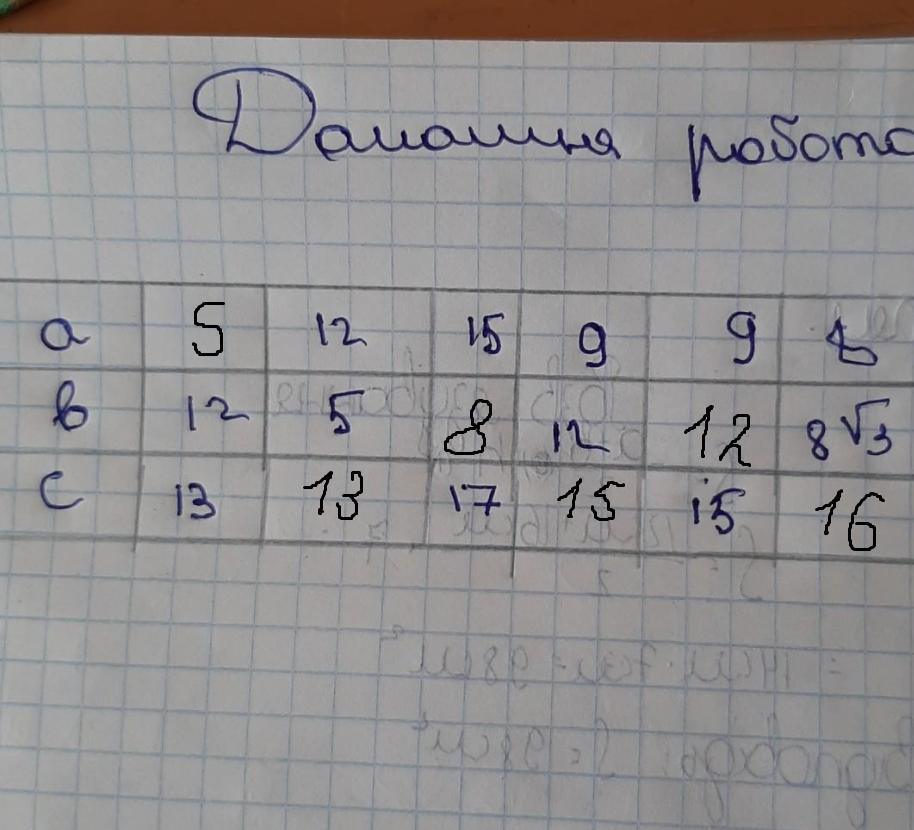 Домашня робота
a 5 12 15 9 9 8
b 12 5 8 12 12 8√3
c 13 13 17 15 15 16